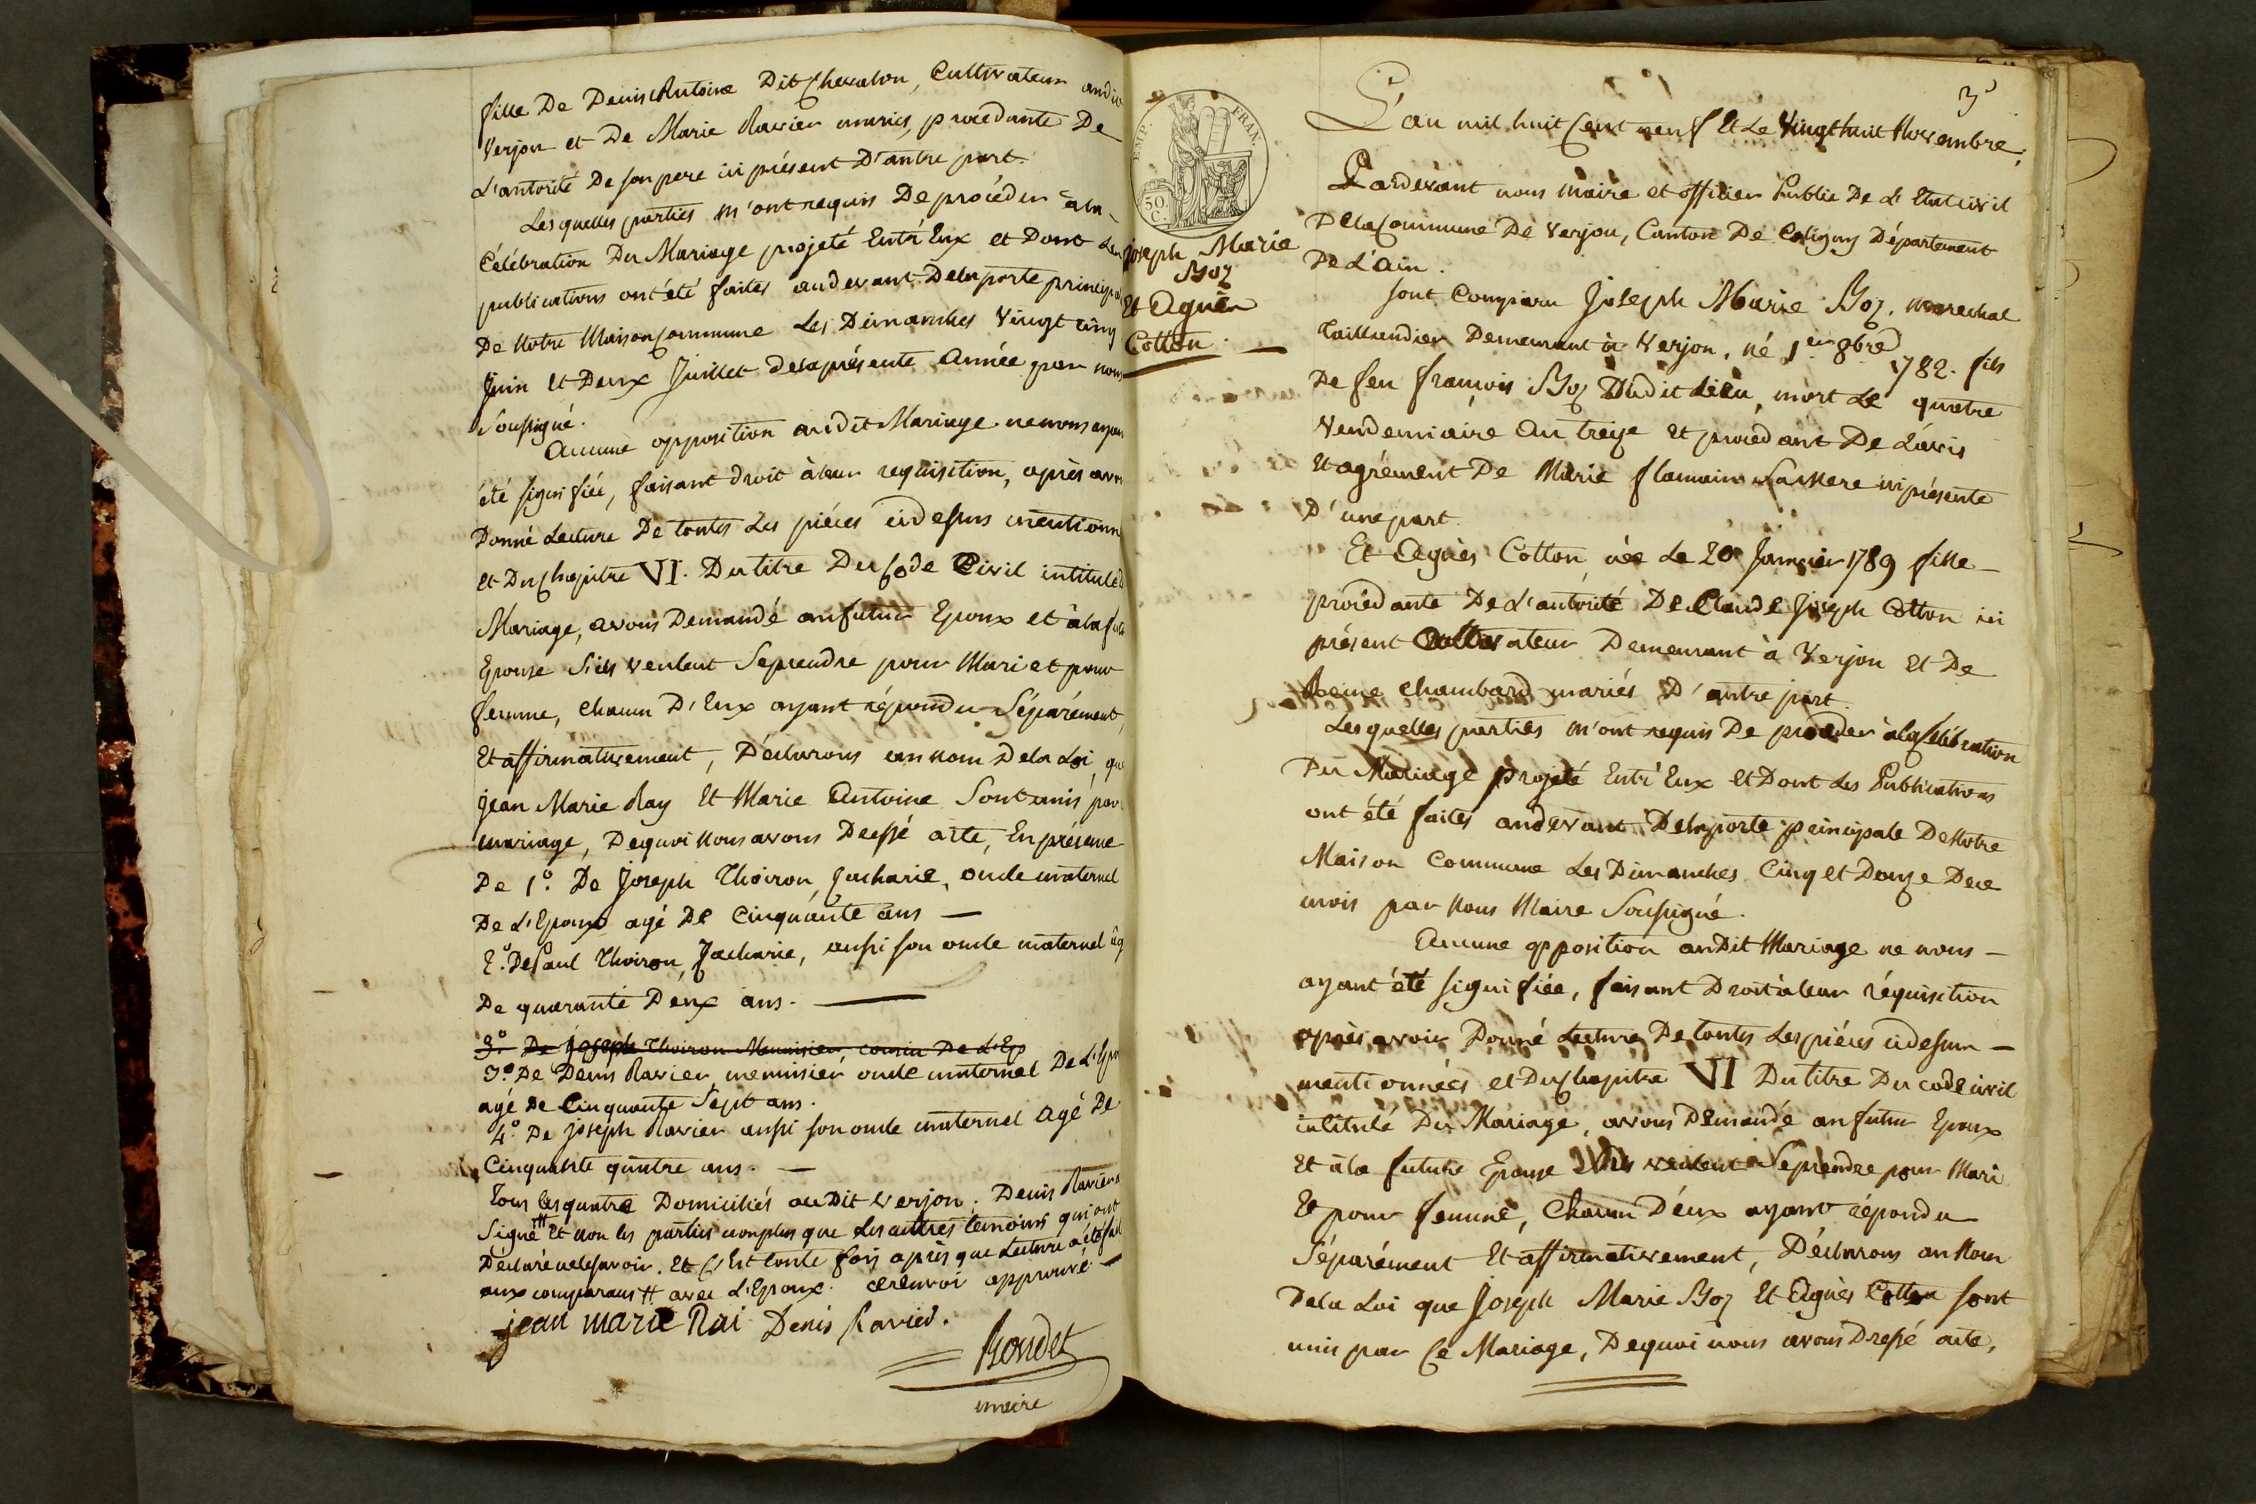 fille De Denis Antoine Dit Chevalon, Cultivateur audit
Verjon et De Marie Ravier mariés, procédante De
L'autorité De son pere ici présent D'autre part.
Les quelles parties m'ont requis De procéder à la
Célébration Du Mariage projeté Entr'Eux et Dont Les
publications ont été faites audevant Dela porte principale
De Notre Maison Commune Les Dimanches Vingt cinq
Juin et Deux Juillet delaprésente Année par nous
Soussigné.
Aucune opposition audit Mariage nenous ayant
été signifiée, faisant droit àleur requisition, après avoir
Donné Lecture De toutes Les piéces cidessus mentionn
et Du Chapitre VI. Dutitre Du Code Civil intitulé d
Mariage, avons Demandé aufutur Epoux et àla fut
Epouse S'ils veulent Seprendre pour Mari et pour
femme, chacun D'Eux ayant répondu Séparément,
Et affirmativement, Déclarons au nom Dela Loi, que
jean Marie Ray Et Marie Antoine Sont unis par
mariage, Dequoi Nous avons Dressé acte, En présence
De 1.° De Joseph Thoiron, Zacharie, oncle maternel
De L'Epoux agé De Cinquante ans —
2.° De Paul Thoiron, Zacharie, aussi son oncle maternel âgé
De quarante Deux ans. —
3.° De joseph Thoiron Menuisier, cousin De L'Ep
3.° De Denis Ravier menuisier oncle maternel De L'Epo
agé De Cinquante Sept ans.
4.° De joseph Ravier aussi son oncle maternel agé De
Cinquante quatre ans. —
Tous les quatre Domiciliés audit verjon. Denis Ravier a
Signé # Et non les parties nonplus que Les autres temoins qui ont
Déclaré nelesavoir. Et c'Est toute fois après que Lecture a été fait
aux comparans # avec L'Epoux. cerenvoi approuvé —
jean marie Rai Denis Ravier.
Bondet
maire
EMP. FRAN.
50. C.
Joseph Marie
Boz
Et Agnès
Cotton.
3
L'an mil huit Cent neuf Et Le Vingt huit Novembre,
Pardevant nous Maire et officier Public De L'Etat civil
Dela Commune De Verjon, Canton De Coligny Département
De L'ain.
Sont Comparu Joseph Marie Boz, marechal
taillandier Demeurant à Verjon, né 1.er 8bre 1782. fils
De feu françois Boz Dudit Lieu, mort Le quatre
Vendemiaire an treize et procédant De L'avis
Et agrément De Marie flamain Samere ici présente
D'une part.
Et Agnès Cotton, née Le 20 Janvier 1789 fille —
procédante De L'autorité De Claude Joseph Cotton ici
présent Cultivateur Demeurant à Verjon Et De
Reine Chambard mariés D'autre part.
Les quelles parties m'ont requis De procéder àla Célébration
Du Mariage projeté Entr'Eux Et Dont Les Publications
ont été faites audevant Delaporte principale De Notre
Maison Commune Les Dimanches Cinq et Douze Dece
mois par Nous Maire Soussigné.
Aucune opposition audit Mariage ne nous —
ayant été signifiée, faisant Droit àleur réquisition
après avoir Donné Lecture De toutes Les piéces cidessus —
mentionnées et Du Chapitre VI Dutitre Du code civil
intitulé Du Mariage, avons Demandé au futur Epoux
Et àla future Epouse S'ils veulent Seprendre pour Mari
Et pour femme, Chacun D'eux ayant répondu
Séparément Et affirmativement, Déclarons au Nom
Dela Loi que Joseph Marie Boz Et Agnès Cotton sont
unis par Ce Mariage, Dequoi nous avons Dressé acte,